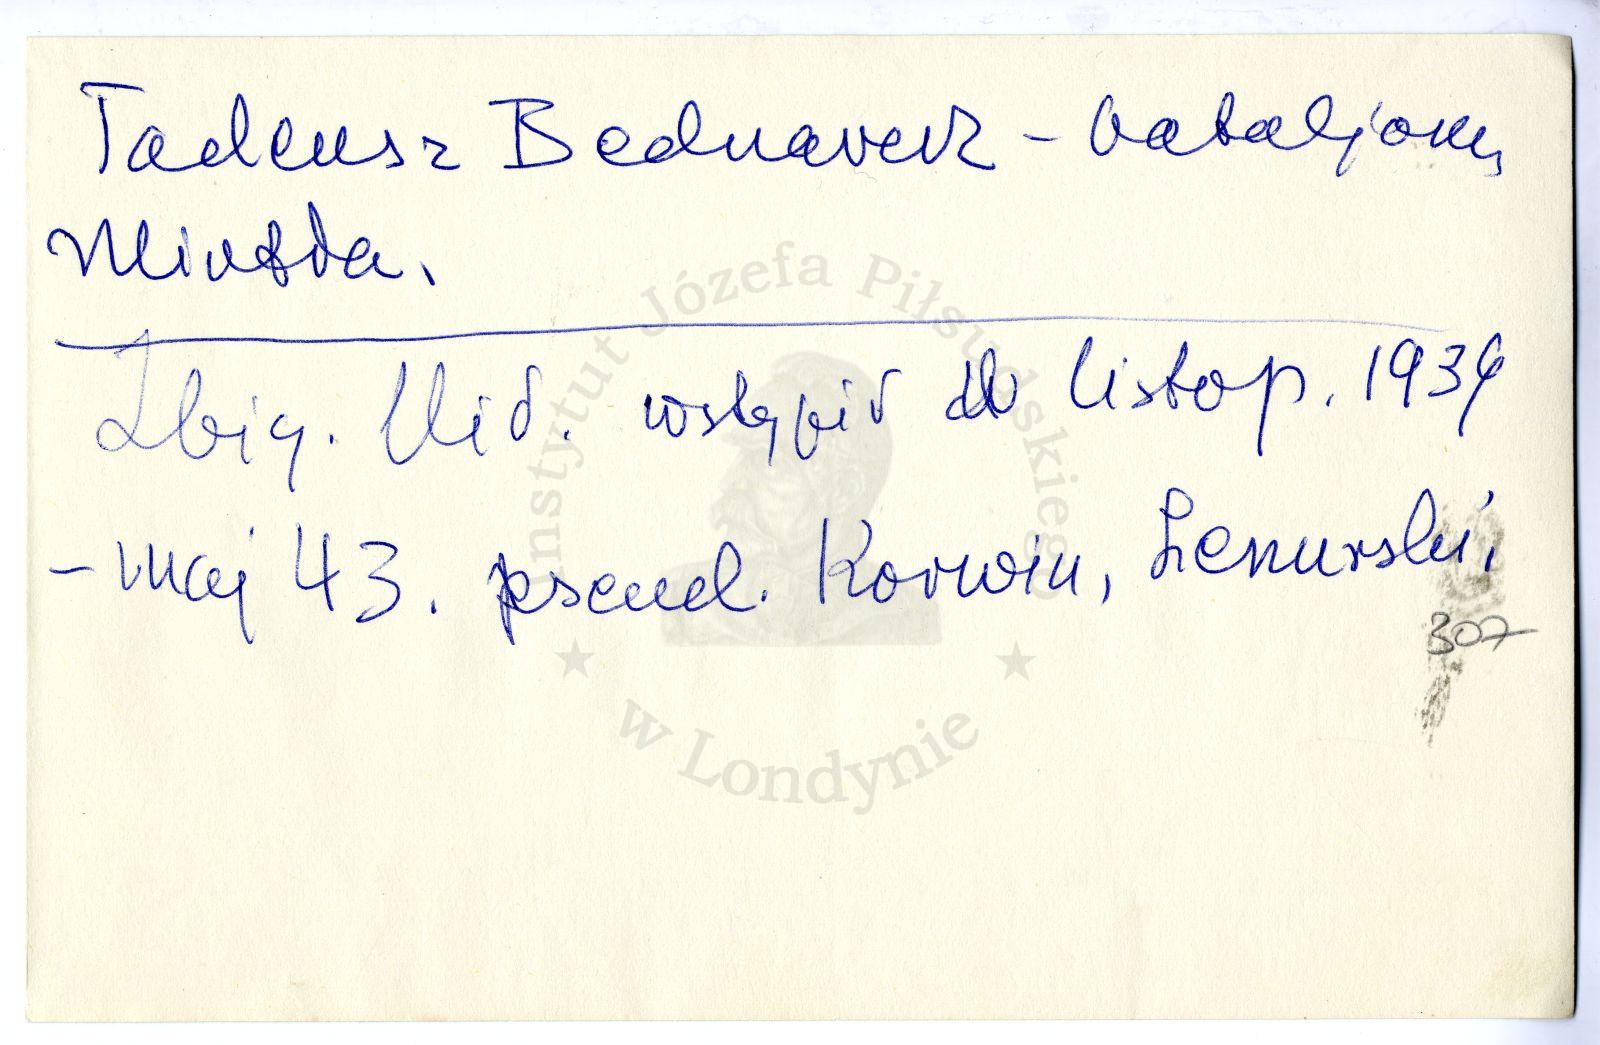 Tadeusz Bednarek - bataljony
Miotła.
Zbig. Mid. wstąpił do listop. 1939
- maj 43. pseud. Korwin,
307
Instytut Józefa Piłsudskiego
w Londynie